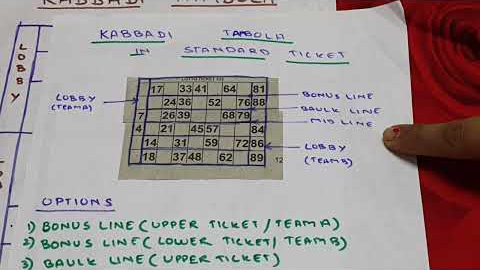 KABBADI TAMBOLA
LOBBY
KABBADI TAMBOLA
IN STANDARD TICKET
17 33 41 64 81
24 36 52 76 88
7 26 39 68 79
4 21 45 57 84
14 31 59 72 86
18 37 48 62 89
12
LOBBY
(TEAM A)
BONUS LINE
BAULK LINE
MID LINE
LOBBY
(TEAM B)
OPTIONS
1) BONUS LINE (UPPER TICKET / TEAM A)
2) BONUS LINE (LOWER TICKET / TEAM B)
3) BAULK LINE (UPPER TICKET)